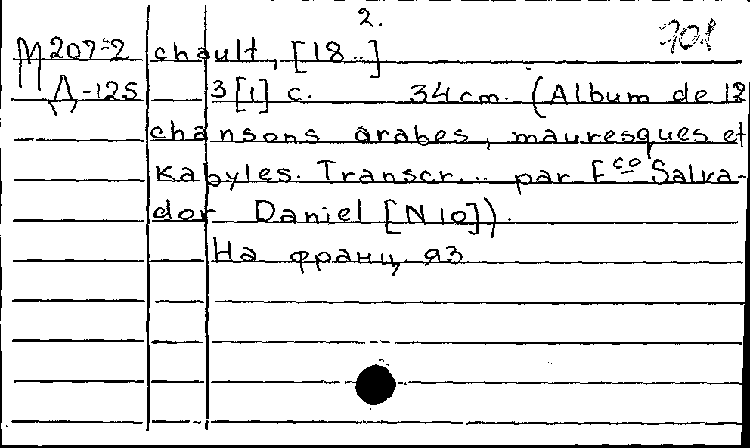 2.
701
М 207-2 chault, [18..]
Д-125 3 [1] с. 34 cm. (Album de 12
chansons arabes, mauresques et
Kabyles. Transcr... par Fco Salva-
dor Daniel [N 10]).
На франц. яз